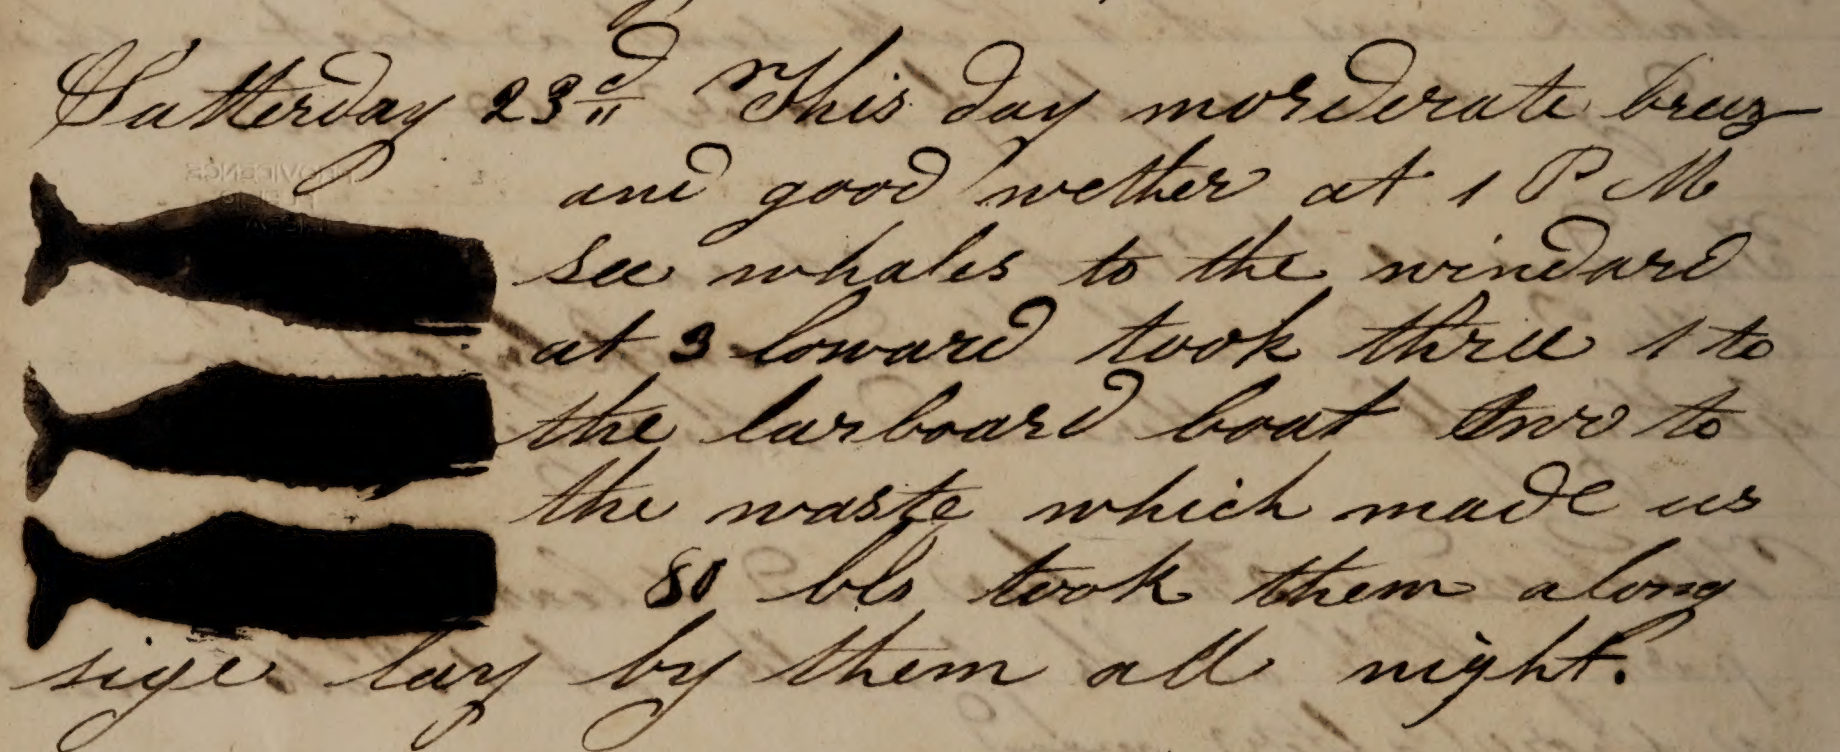 Satterday 23d This day morderate breez
and good wether at 1 P M
see whales to the windard
at 3 loward took three 1 to
the larboard boat two to
the waste which made us
80 bls took them along
side lay by them all night.